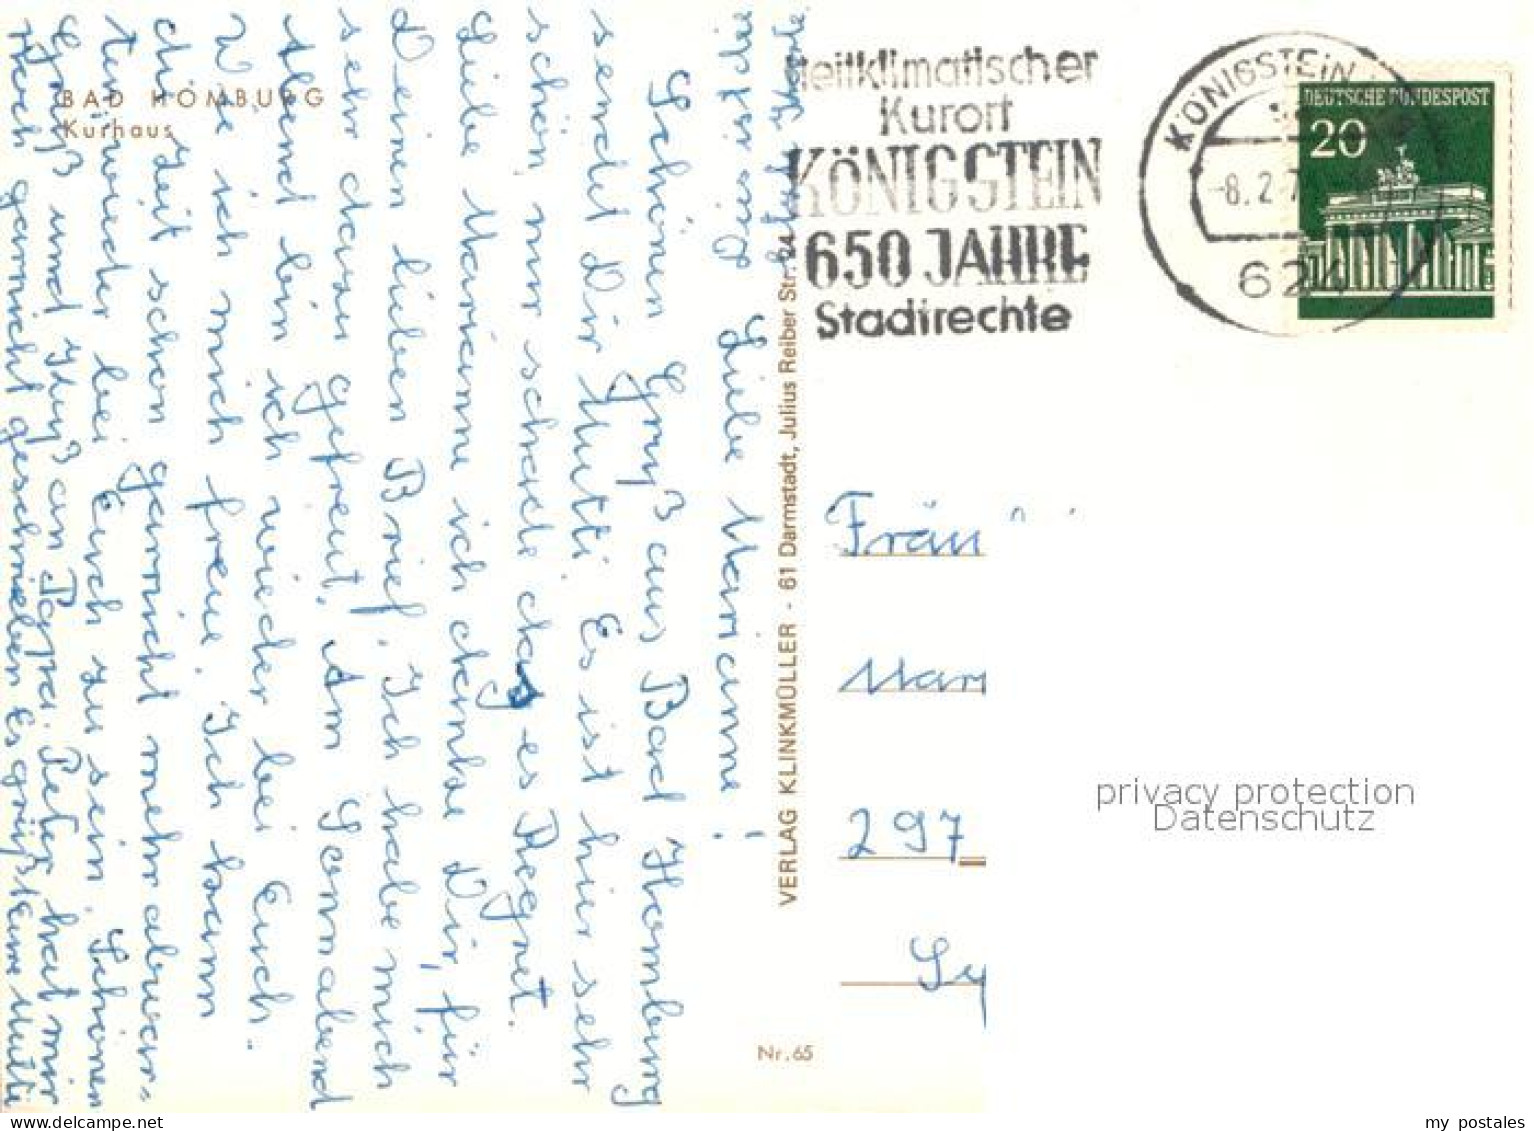 BAD HOMBURG
Kurhaus
Liebe Marianne!
Schönen Gruß aus Bad Homburg
sendet Dir Mutti. Es ist hier sehr
schön nur schade das es Regnet.
Liebe Marianne ich danke Dir, für
Deinen lieben Brief. Ich habe mich
sehr darau gefreut. Am Sonnabend
Abend bin ich wieder bei Euch.
Wie ich mich freue. Ich kann
die Zeit schon garnicht mehr abwar-
ten wieder bei Euch zu sein. Schönen
Gruß und Kuß an Papa. Peter hat mir
noch garnicht geschrieben Es grüßt Eure Mutti
gute Karte.
VERLAG KLINKMÜLLER - 61 Darmstadt, Julius Reiber Str. 24
Nr. 65
heilklimatischer
Kurort
KÖNIGSTEIN
650 JAHRE
Stadtrechte
KÖNIGSTEIN
-8.2.7
624
DEUTSCHE BUNDESPOST
20
Fräu
Mar
297
privacy protection
Datenschutz
my postales